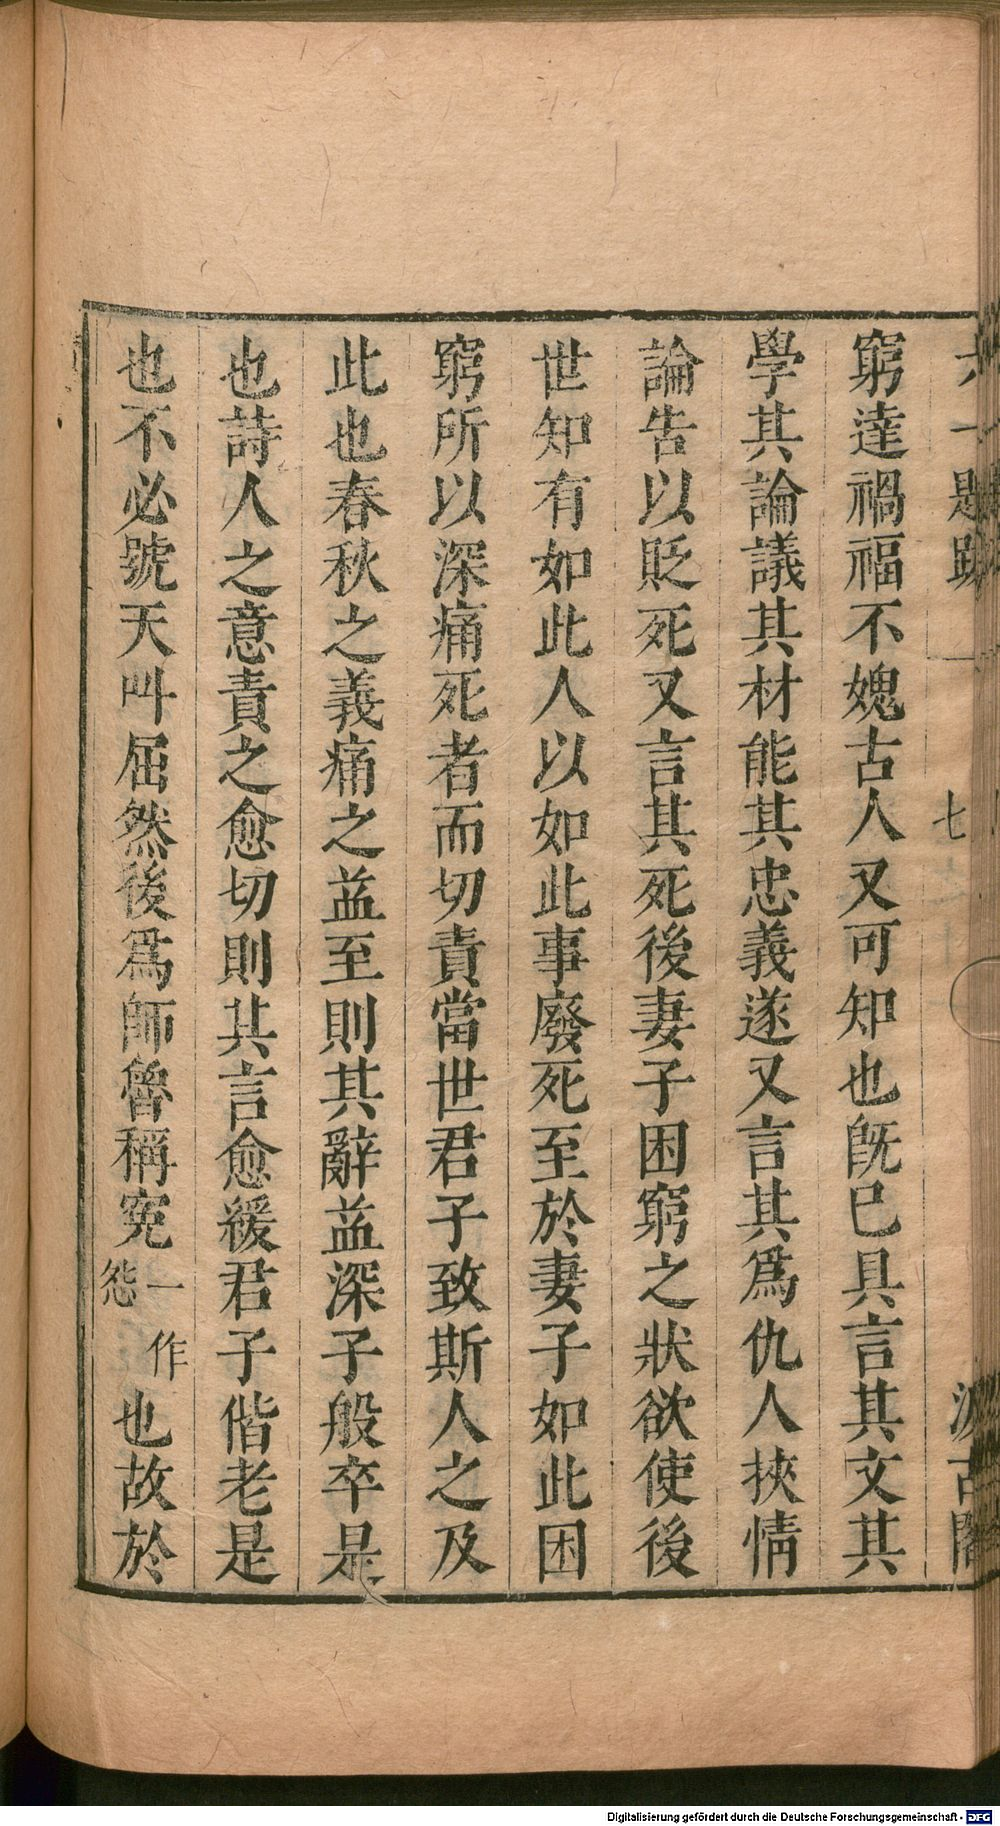 六一題跋 一 七 汲古閣
窮達禍福不媿古人又可知也旣已具言其文其
學其論議其材能其忠義遂又言其爲仇人挾情
論告以貶死又言其死後妻子困窮之狀欲使後
世知有如此人以如此事廢死至於妻子如此困
窮所以深痛死者而切責當世君子致斯人之及
此也春秋之義痛之益至則其辭益深子般卒是
也詩人之意責之愈切則其言愈緩君子偕老是
也不必號天叫屈然後爲師魯稱寃一作怨也故於
Digitalisierung gefördert durch die Deutsche Forschungsgemeinschaft - DFG